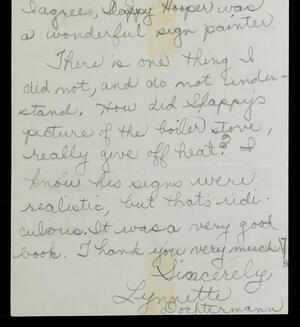 I agree, Slappy Hooper was
a wonderful sign painter.
There is one thing I
did not, and do not under-
stand. How did Slappy's
picture of the boiler stove,
really give off heat? I
know his signs were
realistic, but that's ridi-
culous. It was a very good
book. Thank you very much!
Sincerely,
Lynnette
Dochtermann